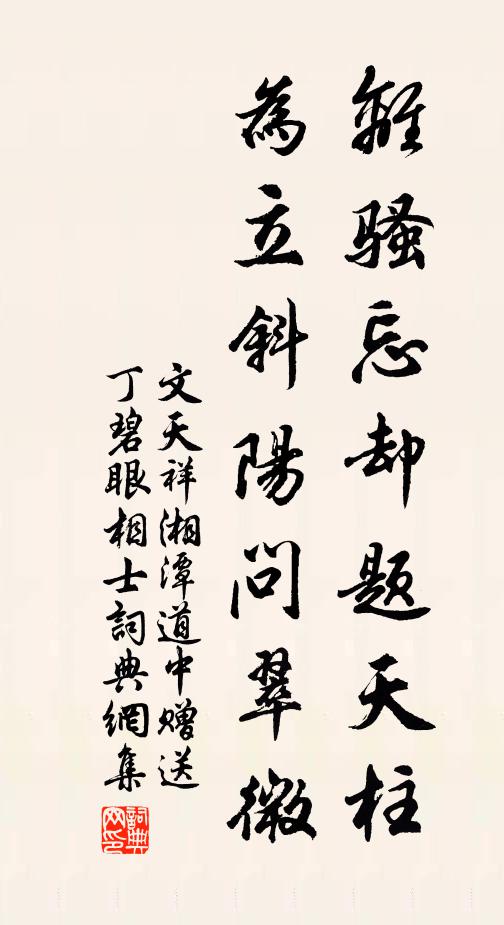 離騷忘却題天柱
為立斜陽問翠微
文天祥湘潭道中贈送
丁碧眼相士詞典網集
詞典网印